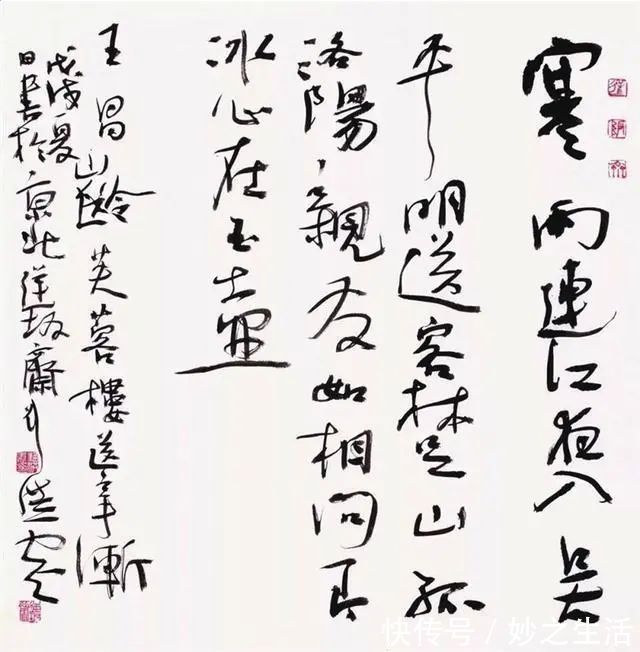 寒雨連江夜入吴
平明送客楚山孤
洛陽親友如相问一片
冰心在玉壺
王昌齡芙蓉樓送辛漸
戊戌夏日書於京北齋
快传号／妙之生活